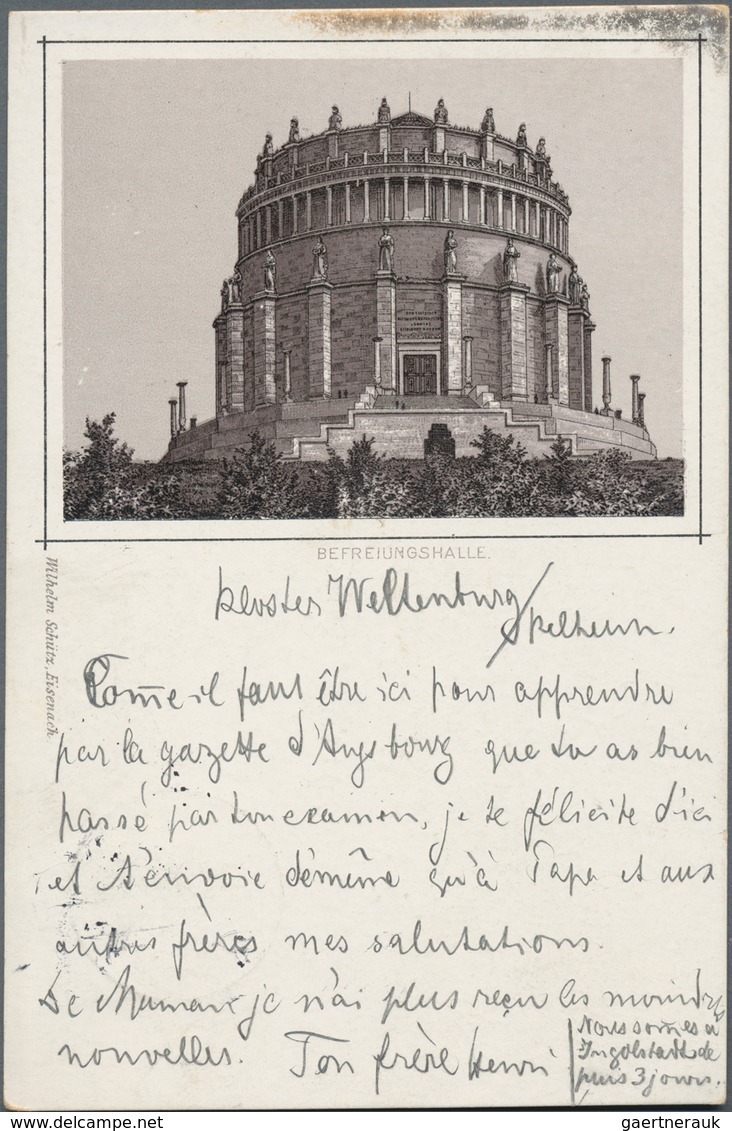 BEFREIUNGSHALLE.
Wilhelm Schütz, Eisenach.
Kloster Weltenburg/Kelheim.
Com̄e il faut être ici pour apprendre
par la gazette d'Augsbourg que tu as bien
passé par ton examen, je te félicite d'ici
et t'envoie de même qu'à Papa et aux
autres frères mes salutations.
De Maman je n'ai plus reçu les moindres
nouvelles. Ton frère Henri
Nous som̄es à
Ingolstadt de
puis 3 jours.
gaertnerauk